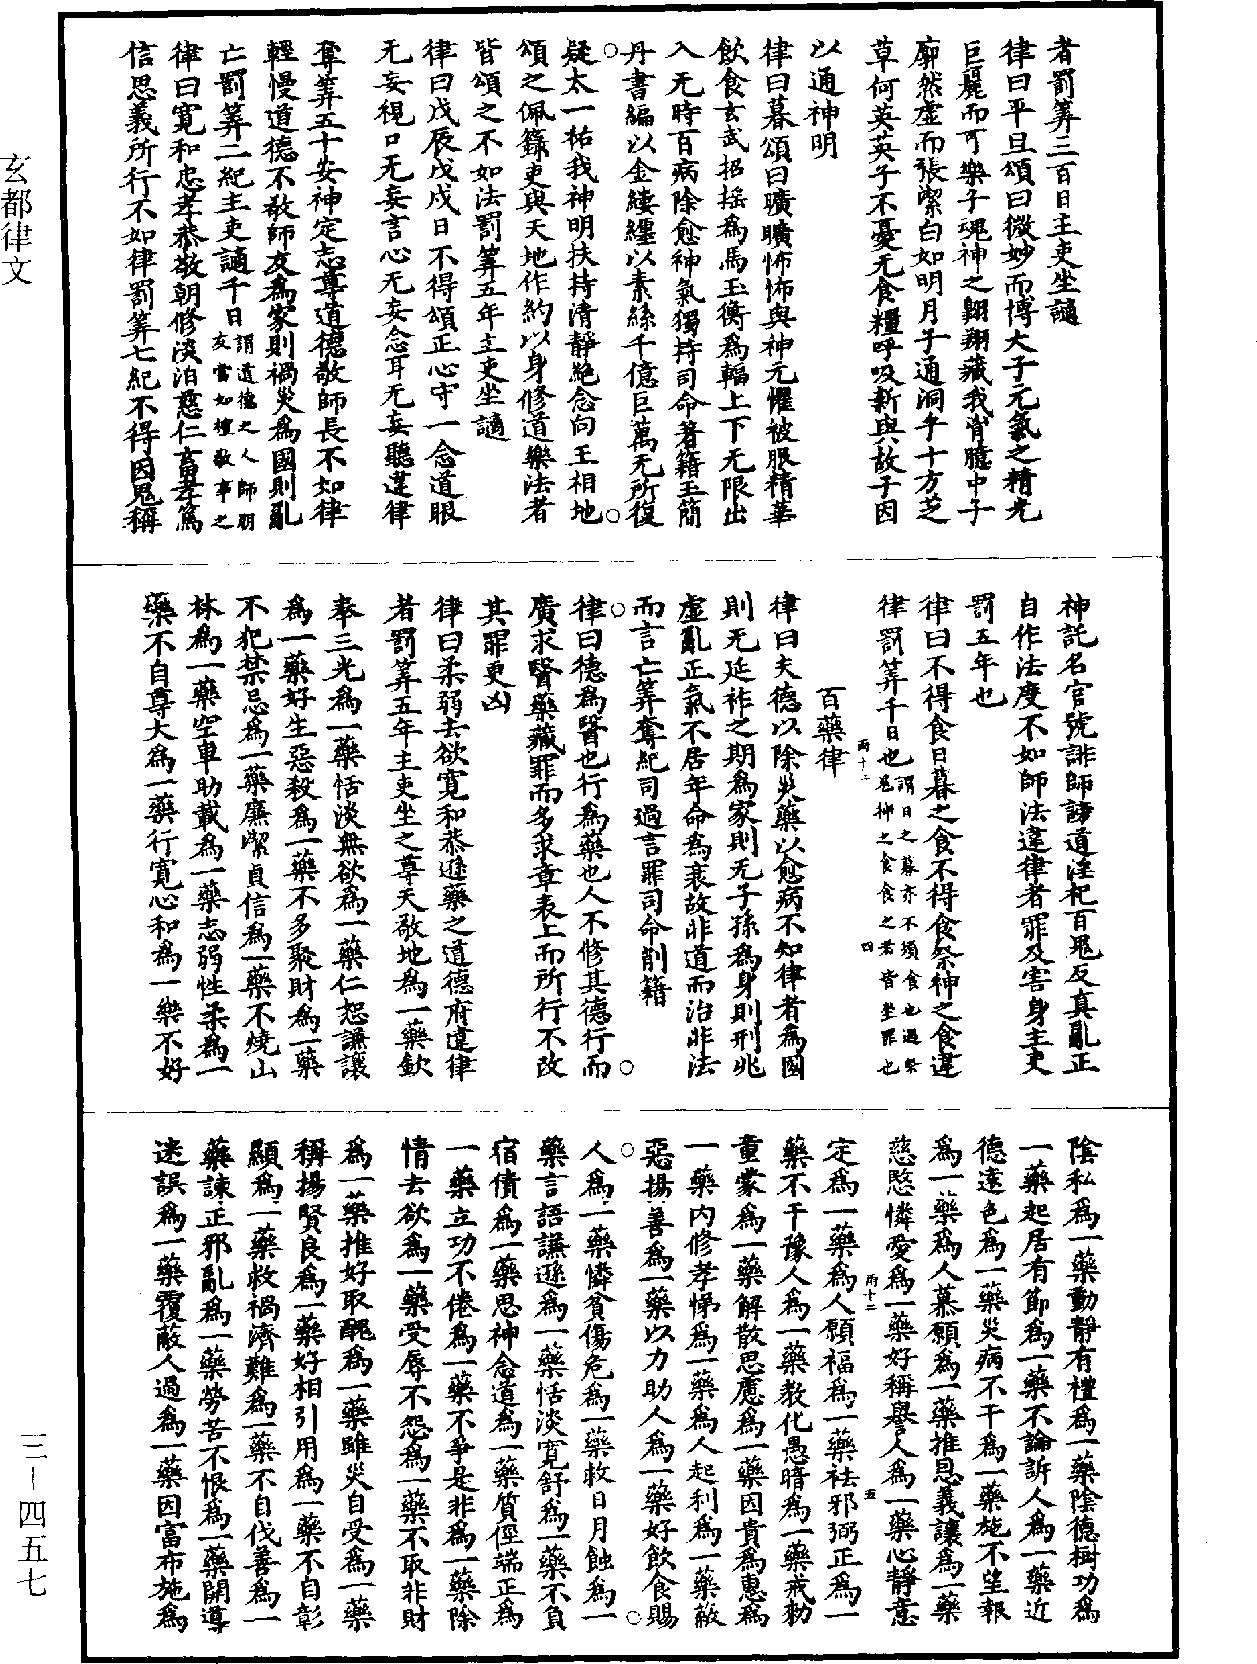 玄都律文
三-四五七
者罰筭三百日主吏坐讁
律曰平旦頌曰微妙而博大子元氣之精光
巨麗而可樂子魂神之翺翔藏我胷臆中子
廓然虛而張潔白如明月子通洞乎十方芝
草何英英子不憂无食糧呼吸新與故子因
以通神明
律曰暮頌曰曠曠怖怖與神无懼被服精華
飲食玄武招揺爲馬玉衡爲輻上下无限出
入无時百病除愈神氣獨持司命著籍玉簡
丹書編以金縷纏以素絲千億巨萬无所復
疑太一祐我神明扶持清靜絶念向王相地
頌之佩籙吏與天地作約以身修道樂法者
皆頌之不如法罰筭五年主吏坐讁
律曰戊辰戊戌日不得頌正心守一念道眼
无妄視口无妄言心无妄念耳无妄聽違律
奪筭五十安神定志尊道德敬師長不如律
輕慢道德不敬師友爲家則禍災爲國則亂
亡罰筭二紀主吏讁千日謂道德之人師朋
友當如禮敬事之
律曰寛和忠孝恭敬朝修淡泊慈仁畜孝篤
信思義所行不如律罰筭七紀不得因鬼稱
神託名官號誹師謗道淫祀百鬼反真亂正
自作法度不如師法違律者罪及害身主吏
罰五年也
律曰不得食日暮之食不得食祭神之食違
律罰筭千日也謂日之暮亦不須食也過祭
鬼神之食食之者皆坐罪也
百藥律
律曰夫德以除災藥以愈病不知律者爲國
則无延祚之期爲家則无子孫爲身則刑兆
虛亂正氣不居年命爲衰故非道而治非法
而言亡筭奪紀司過言罪司命削籍
律曰德爲醫也行爲藥也人不修其德行而
廣求醫藥藏罪而多求章表上而所行不改
其罪更凶
律曰柔弱去欲寛和恭遜藥之道德府違律
者罰筭五年主吏坐之尊天敬地爲一藥欽
奉三光爲一藥恬淡無欲爲一藥仁恕謙讓
爲一藥好生惡殺爲一藥不多聚財爲一藥
不犯禁忌爲一藥廉潔貞信爲一藥不燒山
林爲一藥空車助載爲一藥志弱性柔爲一
藥不自尊大爲一藥行寛心和爲一藥不好
陰私爲一藥動靜有禮爲一藥陰德樹功爲
一藥起居有節爲一藥不論訴人爲一藥近
德遠色爲一藥災病不干爲一藥施不望報
爲一藥爲人慕願爲一藥推恩義讓爲一藥
慈愍憐愛爲一藥好稱譽人爲一藥心靜意
定爲一藥爲人願福爲一藥袪邪弼正爲一
藥不干豫人爲一藥教化愚暗爲一藥戒勑
童蒙爲一藥解散思慮爲一藥因貴爲惠爲
一藥内修孝悌爲一藥爲人起利爲一藥蔽
惡揚善爲一藥以力助人爲一藥好飲食賜
人爲一藥憐貧傷危爲一藥救日月蝕爲一
藥言語謙遜爲一藥恬淡寛舒爲一藥不負
宿債爲一藥思神念道爲一藥質俓端正爲
一藥立功不倦爲一藥不爭是非爲一藥除
情去欲爲一藥受辱不怨爲一藥不取非財
爲一藥推好取醜爲一藥雖災自受爲一藥
稱揚賢良爲一藥好相引用爲一藥不自彰
顯爲一藥救禍濟難爲一藥不自伐善爲一
藥諫正邪亂爲一藥勞苦不恨爲一藥開導
迷誤爲一藥覆蔽人過爲一藥因富布施爲